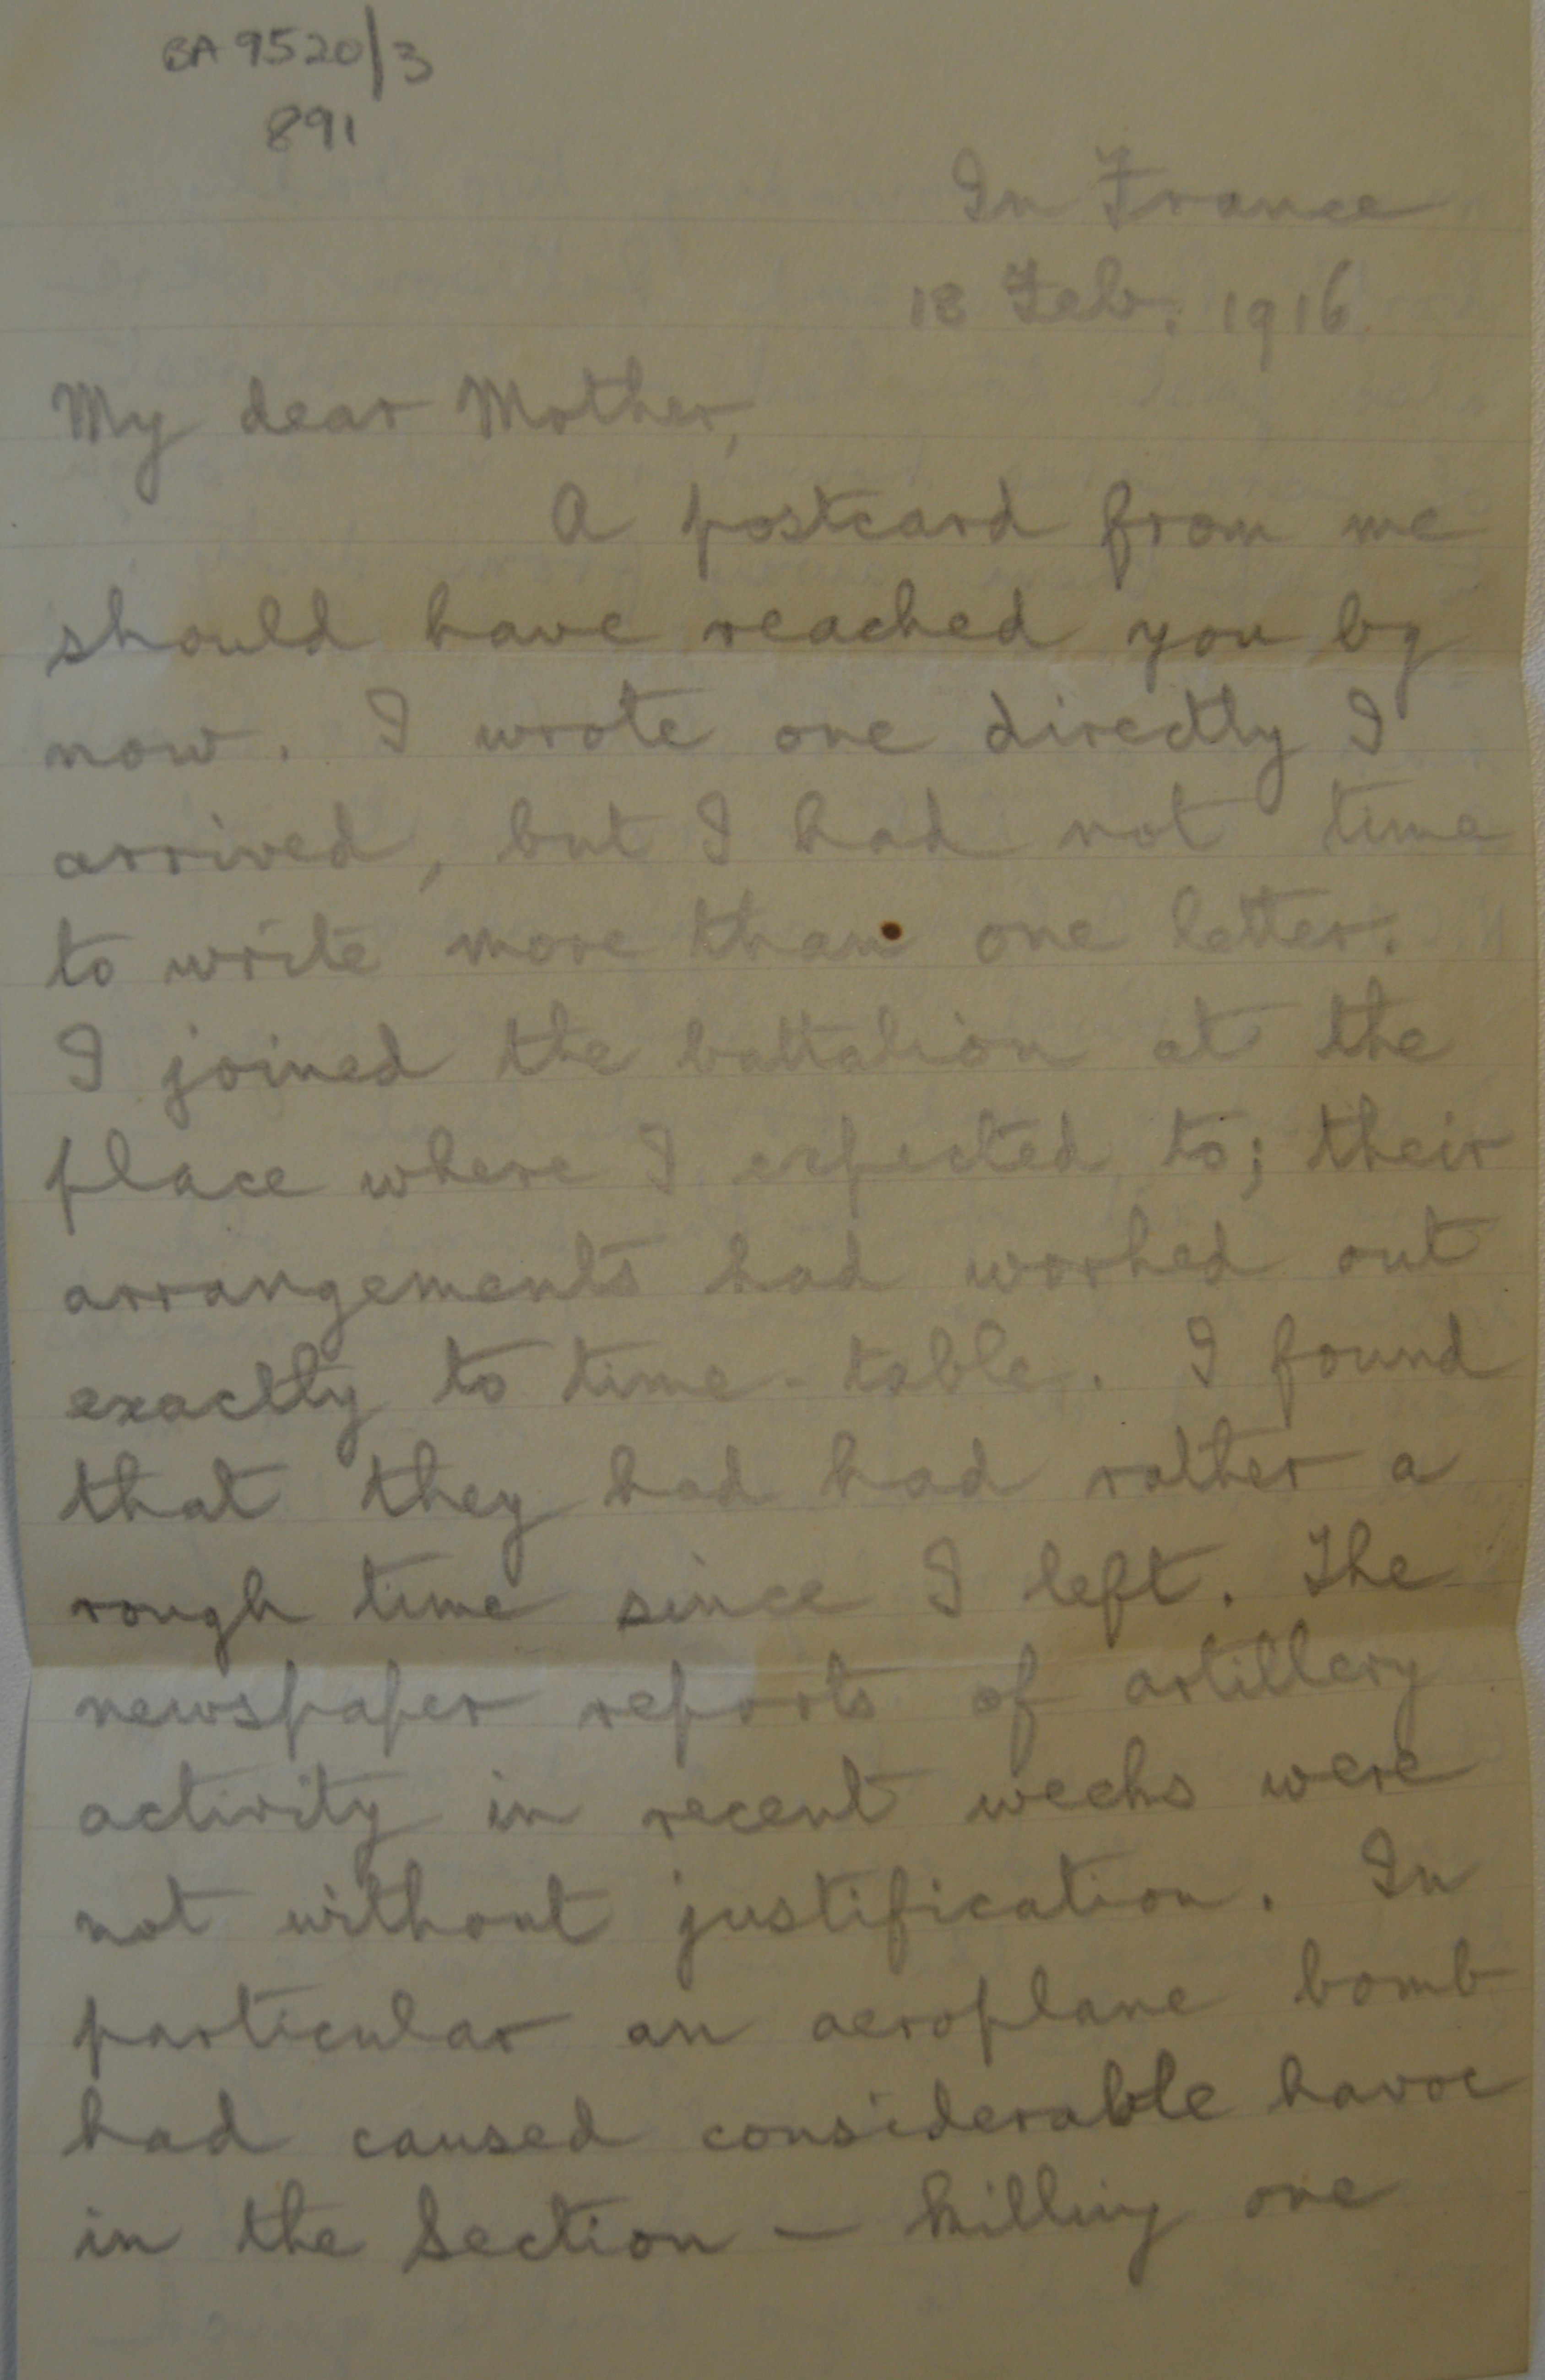 BA 9520/3
891
In France
18 Feb. 1916
My dear Mother,
A postcard from me
should have reached you by
now. I wrote one directly I
arrived, but I had not time
to write more than one letter.
I joined the battalion at the
place where I expected to; their
arrangements had worked out
exactly to time-table. I found
that they had had rather a
rough time since I left. The
newspaper reports of artillery
activity in recent weeks were
not without justification. In
particular an aeroplane bomb
had caused considerable havoc
in the Section — killing one